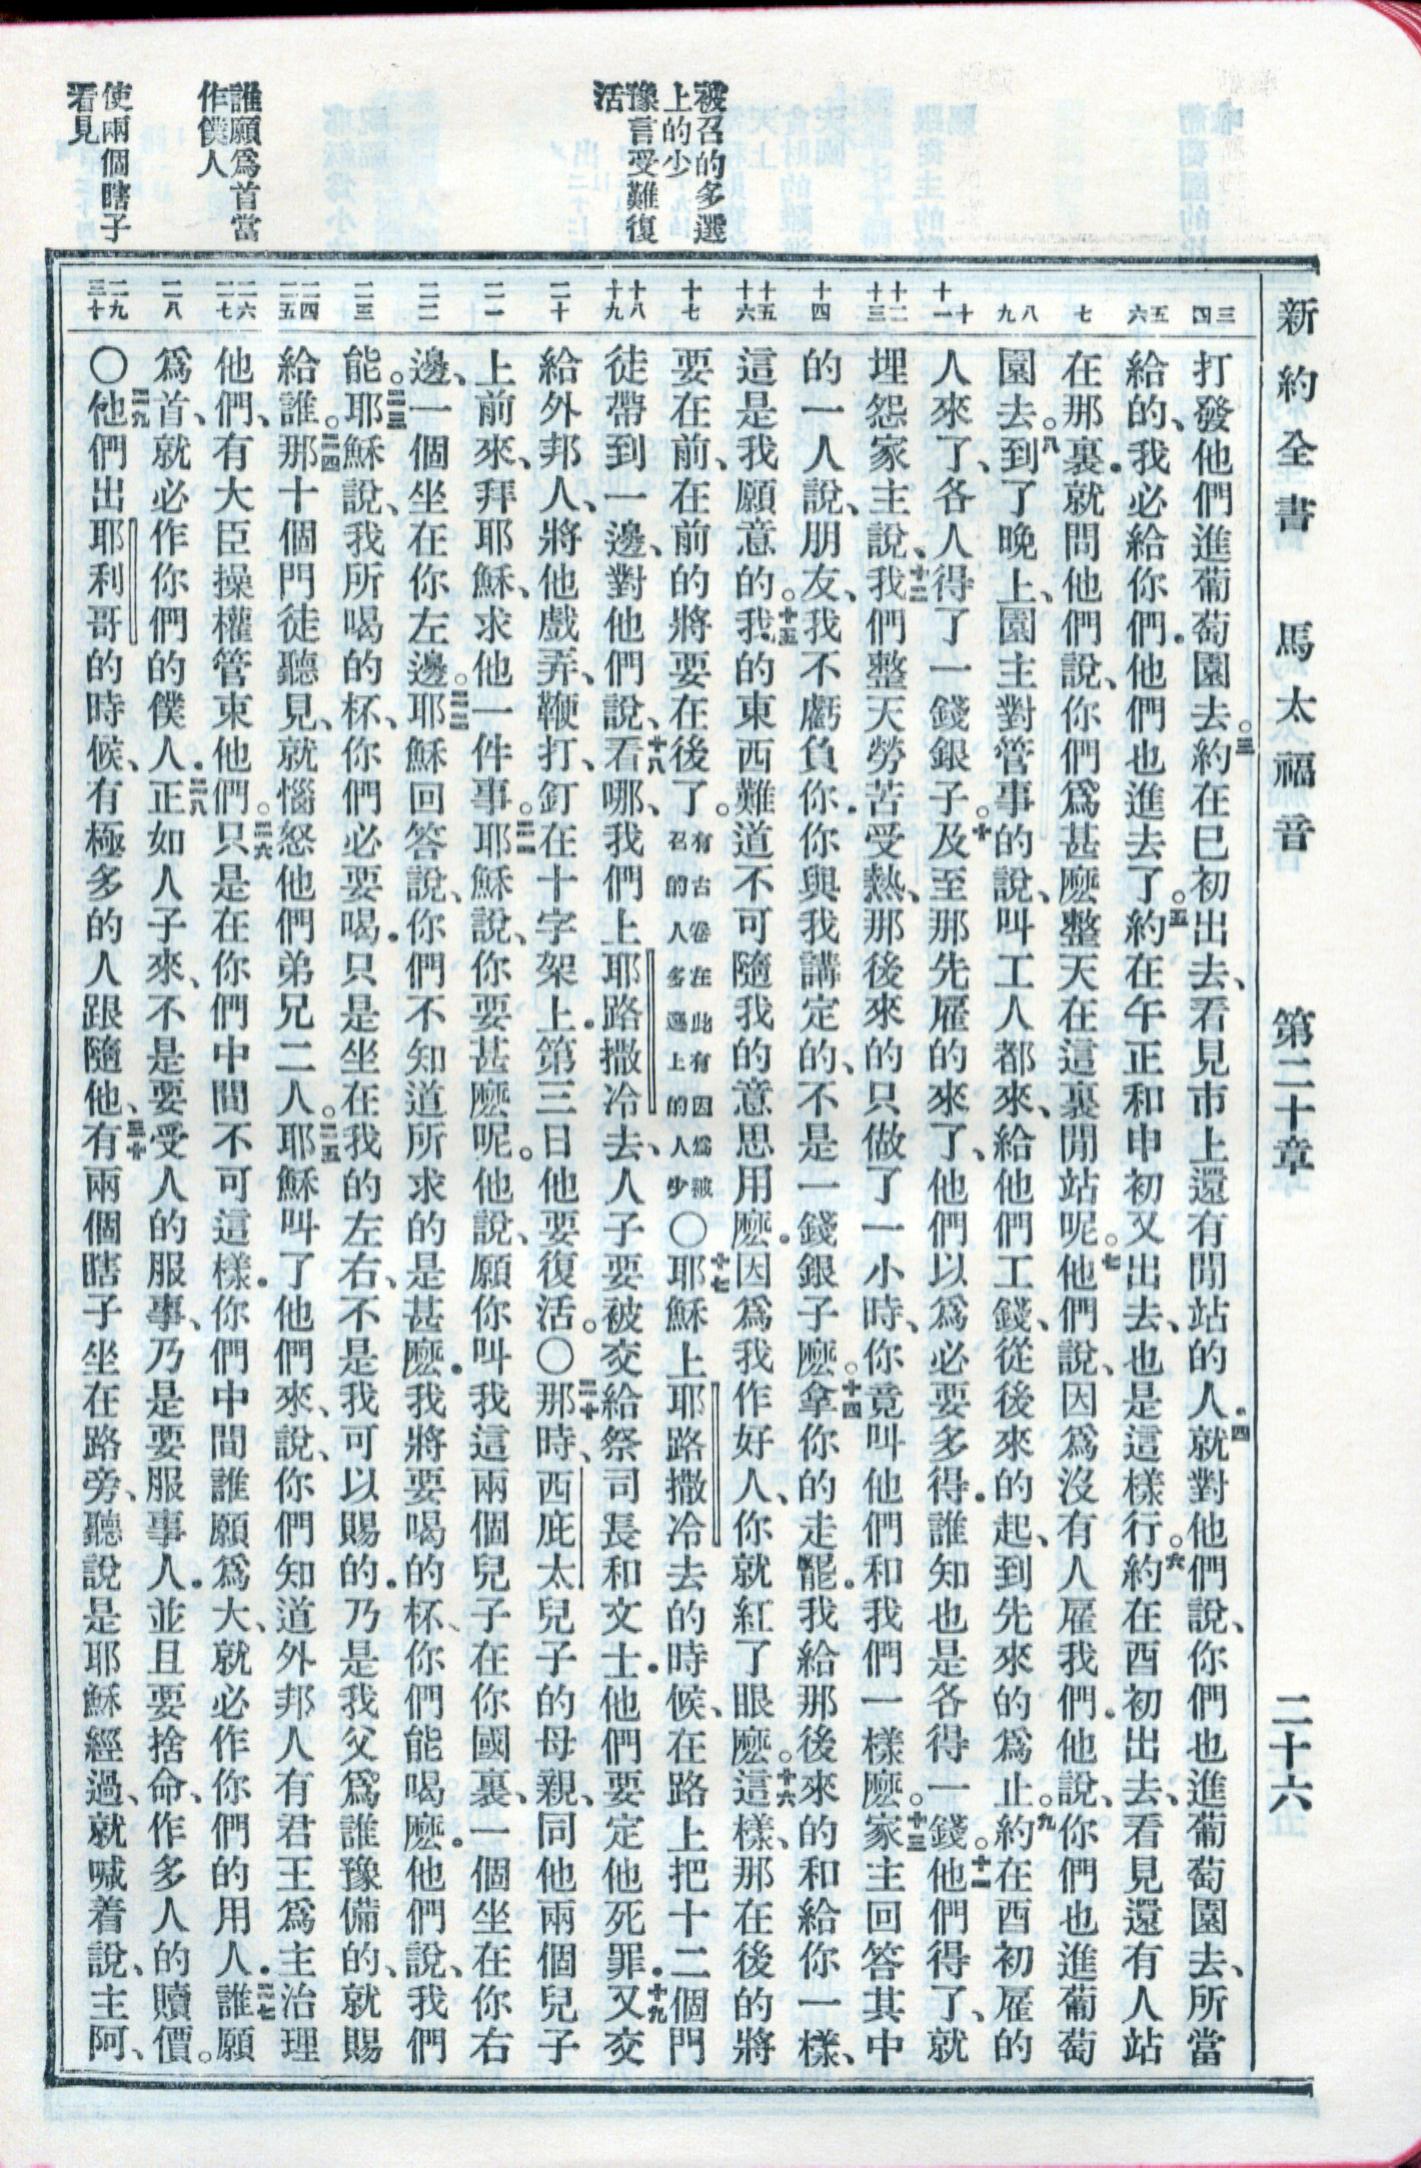 新約全書 馬太福音 第二十章 二十六
被召的多選
上的少
豫言受難復
活
誰願爲首當
作僕人
使兩個瞎子
看見
三 四
五 六
七
八 九
十 十一
十二 十三
十四
十五 十六
十七
十八 十九
二十
二一
二二
二三
二四 二五
二六 二七
二八
二九 三十
打發他們進葡萄園去。三約在巳初出去、看見市上還有閒站的人．四就對他們說、你們也進葡萄園去、所當
給的、我必給你們．他們也進去了。五約在午正和申初又出去、也是這樣行。六約在酉初出去、看見還有人站
在那裏．就問他們說、你們爲甚麽整天在這裏閒站呢。七他們說、因爲沒有人雇我們．他說、你們也進葡萄
園去。八到了晚上、園主對管事的說、叫工人都來、給他們工錢、從後來的起、到先來的爲止。九約在酉初雇的
人來了、各人得了一錢銀子。十及至那先雇的來了、他們以爲必要多得．誰知也是各得一錢。十一他們得了、就
埋怨家主說、十二我們整天勞苦受熱、那後來的只做了一小時、你竟叫他們和我們一樣麽。十三家主回答其中
的一人說、朋友、我不虧負你．你與我講定的、不是一錢銀子麽。十四拿你的走罷．我給那後來的和給你一樣、
這是我願意的。十五我的東西難道不可隨我的意思用麽．因爲我作好人、你就紅了眼麽。十六這樣、那在後的將
要在前、在前的將要在後了。有古卷在此有因爲被召的人多選上的人少〇十七耶穌上耶路撒冷去的時候、在路上把十二個門
徒帶到一邊、對他們說、十八看哪、我們上耶路撒冷去、人子要被交給祭司長和文士．他們要定他死罪．十九又交
給外邦人、將他戲弄、鞭打、釘在十字架上．第三日他要復活。〇二十那時、西庇太兒子的母親、同他兩個兒子
上前來、拜耶穌、求他一件事。二一耶穌說、你要甚麽呢。他說、願你叫我這兩個兒子在你國裏、一個坐在你右
邊、一個坐在你左邊。二二耶穌回答說、你們不知道所求的是甚麽．我將要喝的杯、你們能喝麽．他們說、我們
能。二三耶穌說、我所喝的杯、你們必要喝．只是坐在我的左右、不是我可以賜的．乃是我父爲誰豫備的、就賜
給誰。二四那十個門徒聽見、就惱怒他們弟兄二人。二五耶穌叫了他們來、說、你們知道外邦人有君王爲主治理
他們、有大臣操權管束他們。二六只是在你們中間不可這樣．你們中間誰願爲大、就必作你們的用人．二七誰願
爲首、就必作你們的僕人．二八正如人子來、不是要受人的服事、乃是要服事人．並且要捨命、作多人的贖價。
〇二九他們出耶利哥的時候、有極多的人跟隨他、三十有兩個瞎子坐在路旁、聽說是耶穌經過、就喊着說、主阿、